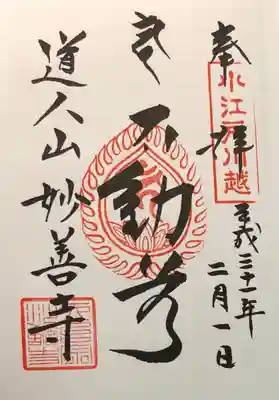 奉拝
小江戸川越
平成三十一年
二月一日
不動尊
道人山妙善寺